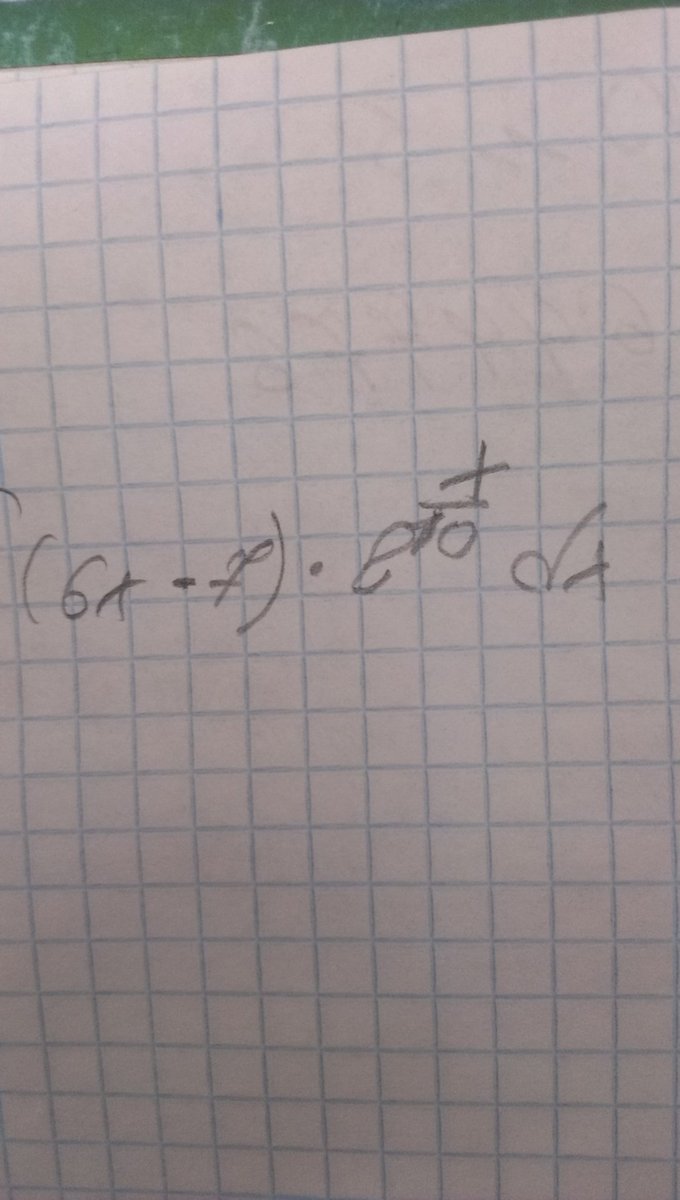 (6x - 7) · e^{\frac{x}{10}} dx